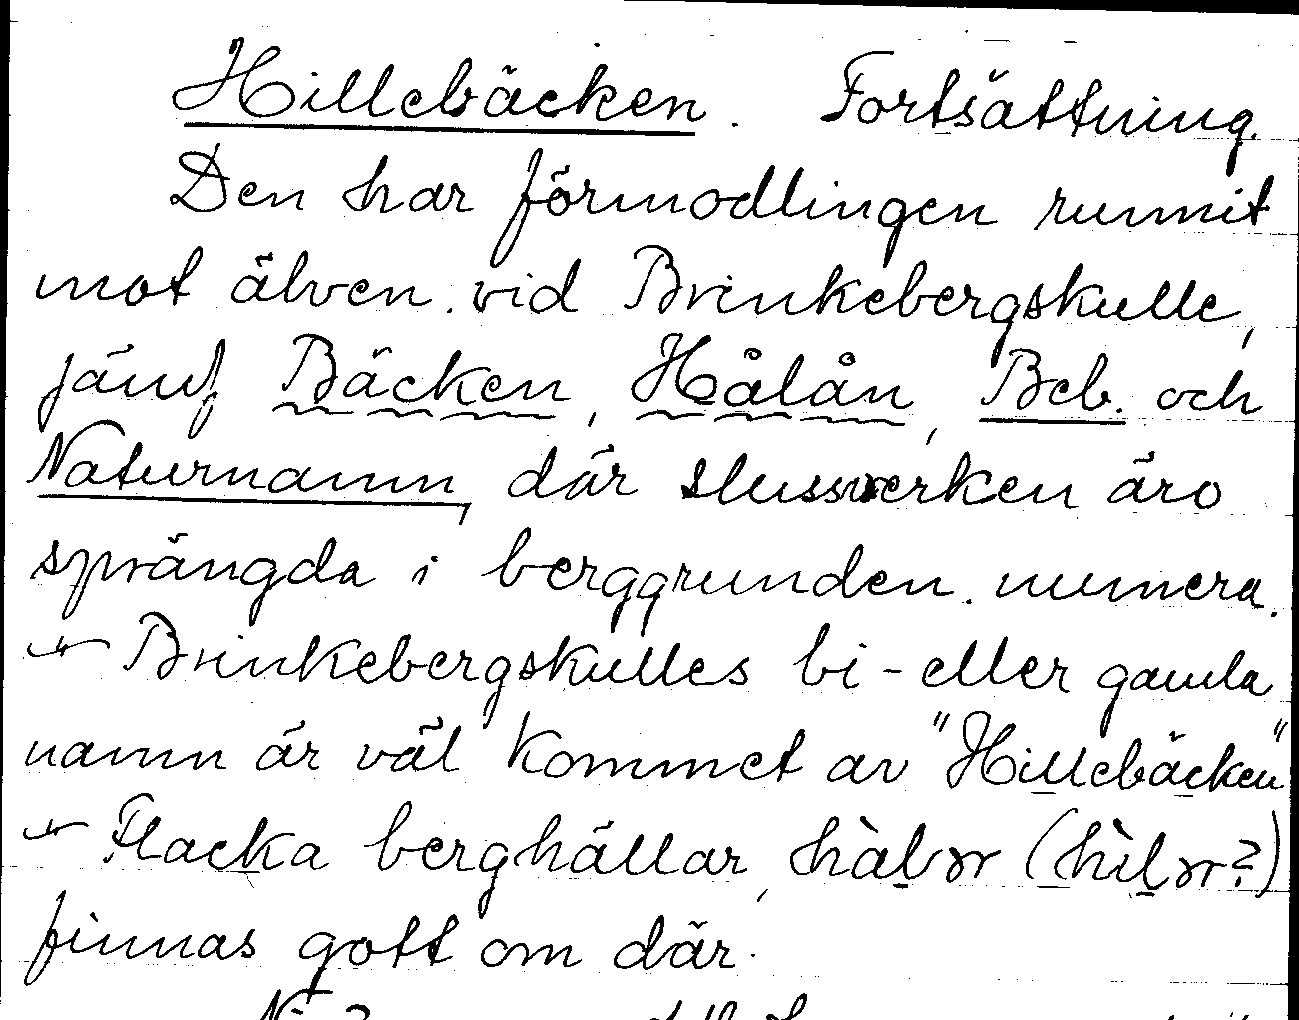 Hillebäcken. Fortsättning.
Den har förmodlingen runnit
mot älven vid Brinkebergskulle,
jämf Bäcken, Hålån, Beb. och
Naturnamn, där slussverken äro
sprängda i berggrunden numera.
Brinkebergskulles bi-eller gamla
namn är väl kommet av "Hillebäcken"
Flacka berghällar,
finnas gott om där.